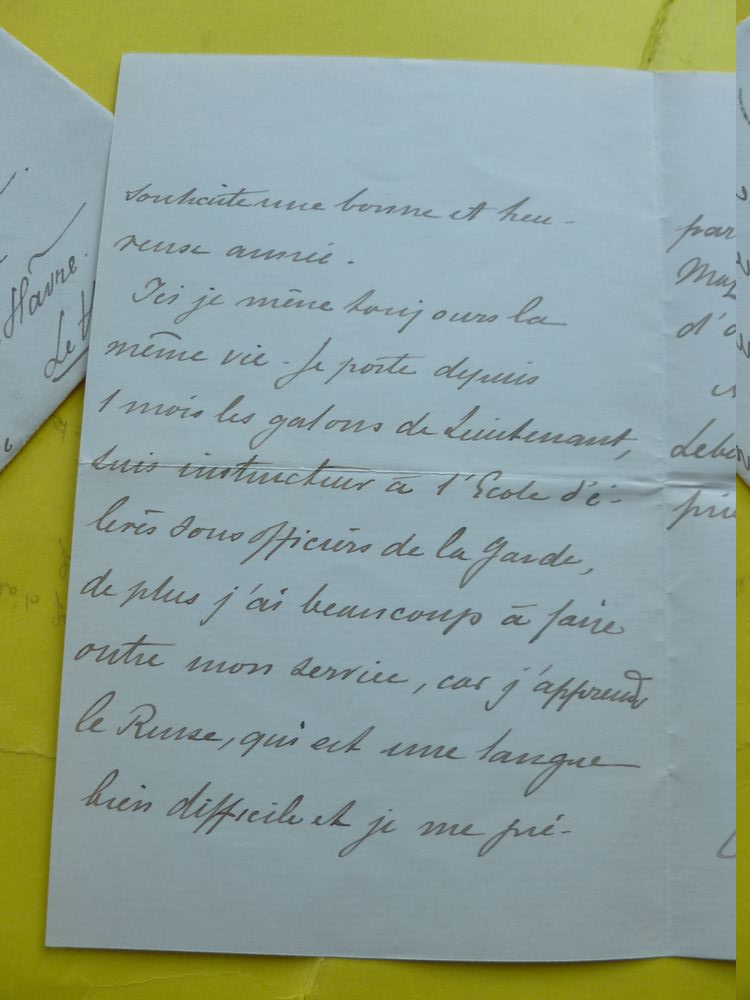 souhaite une bonne et heu-
reuse année.
Ici je mène toujours la
même vie - Je porte depuis
1 mois les galons de Lieutenant,
suis instructeur à l'Ecole d'é-
lèves sous officiers de la Garde,
de plus j'ai beaucoup à faire
outre mon service, car j'apprends
le Russe, qui est une langue
bien difficile et je me pré-
Havre.
Le
par
d'